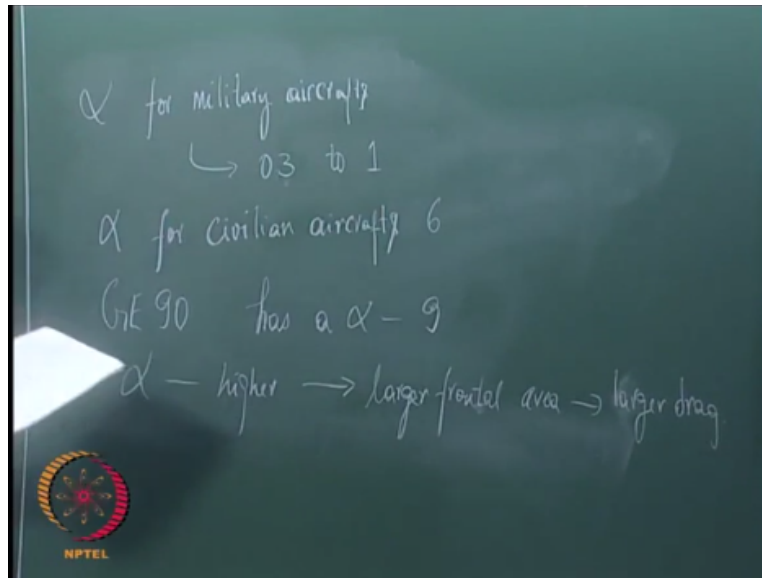 α for military aircrafts
↳ 03 to 1
α for civilian aircrafts 6
GE 90 has a α - 9
α - higher → larger frontal area → larger drag
NPTEL